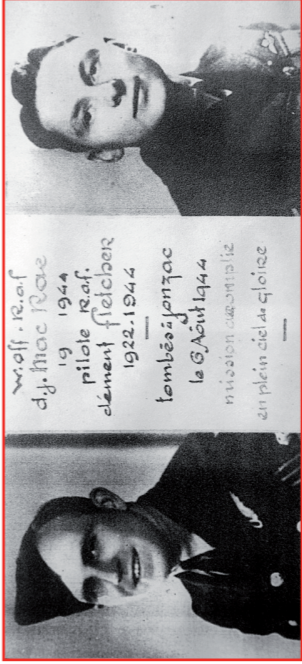 w.off. R.a.f
d.j. Mac Rae
19 1944
pilote R.a.f.
clément fletcher
1922.1944
tombés à jonzac
le 6 Août 1944
mission accomplie
en plein ciel de gloire